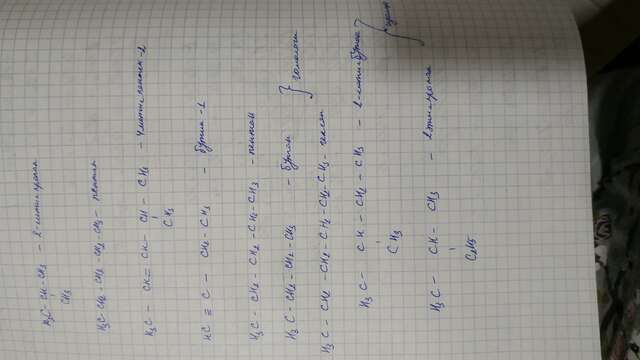 H₃C - CH - CH₃ - 2-метилпропан
CH₃
H₃C - CH₂ - CH₂ - CH₂ - CH₃ - пентан
H₃C - CH = CH - CH - CH₃ - 4метилпентен-2
CH₃
HC ≡ C - CH₂ - CH₃ - бутин-1
H₃C - CH₂ - CH₂ - CH₂ - CH₃ - пентан
H₃C - CH₂ - CH₂ - CH₃ - бутан } гомологи
H₃C - CH₂ - CH₂ - CH₂ - CH₂ - CH₃ - гексан
H₃C - CH - CH₂ - CH₃ - 2-метилбутан
CH₃
H₃C - CH - CH₃ - 2этилпропан
C₂H₅